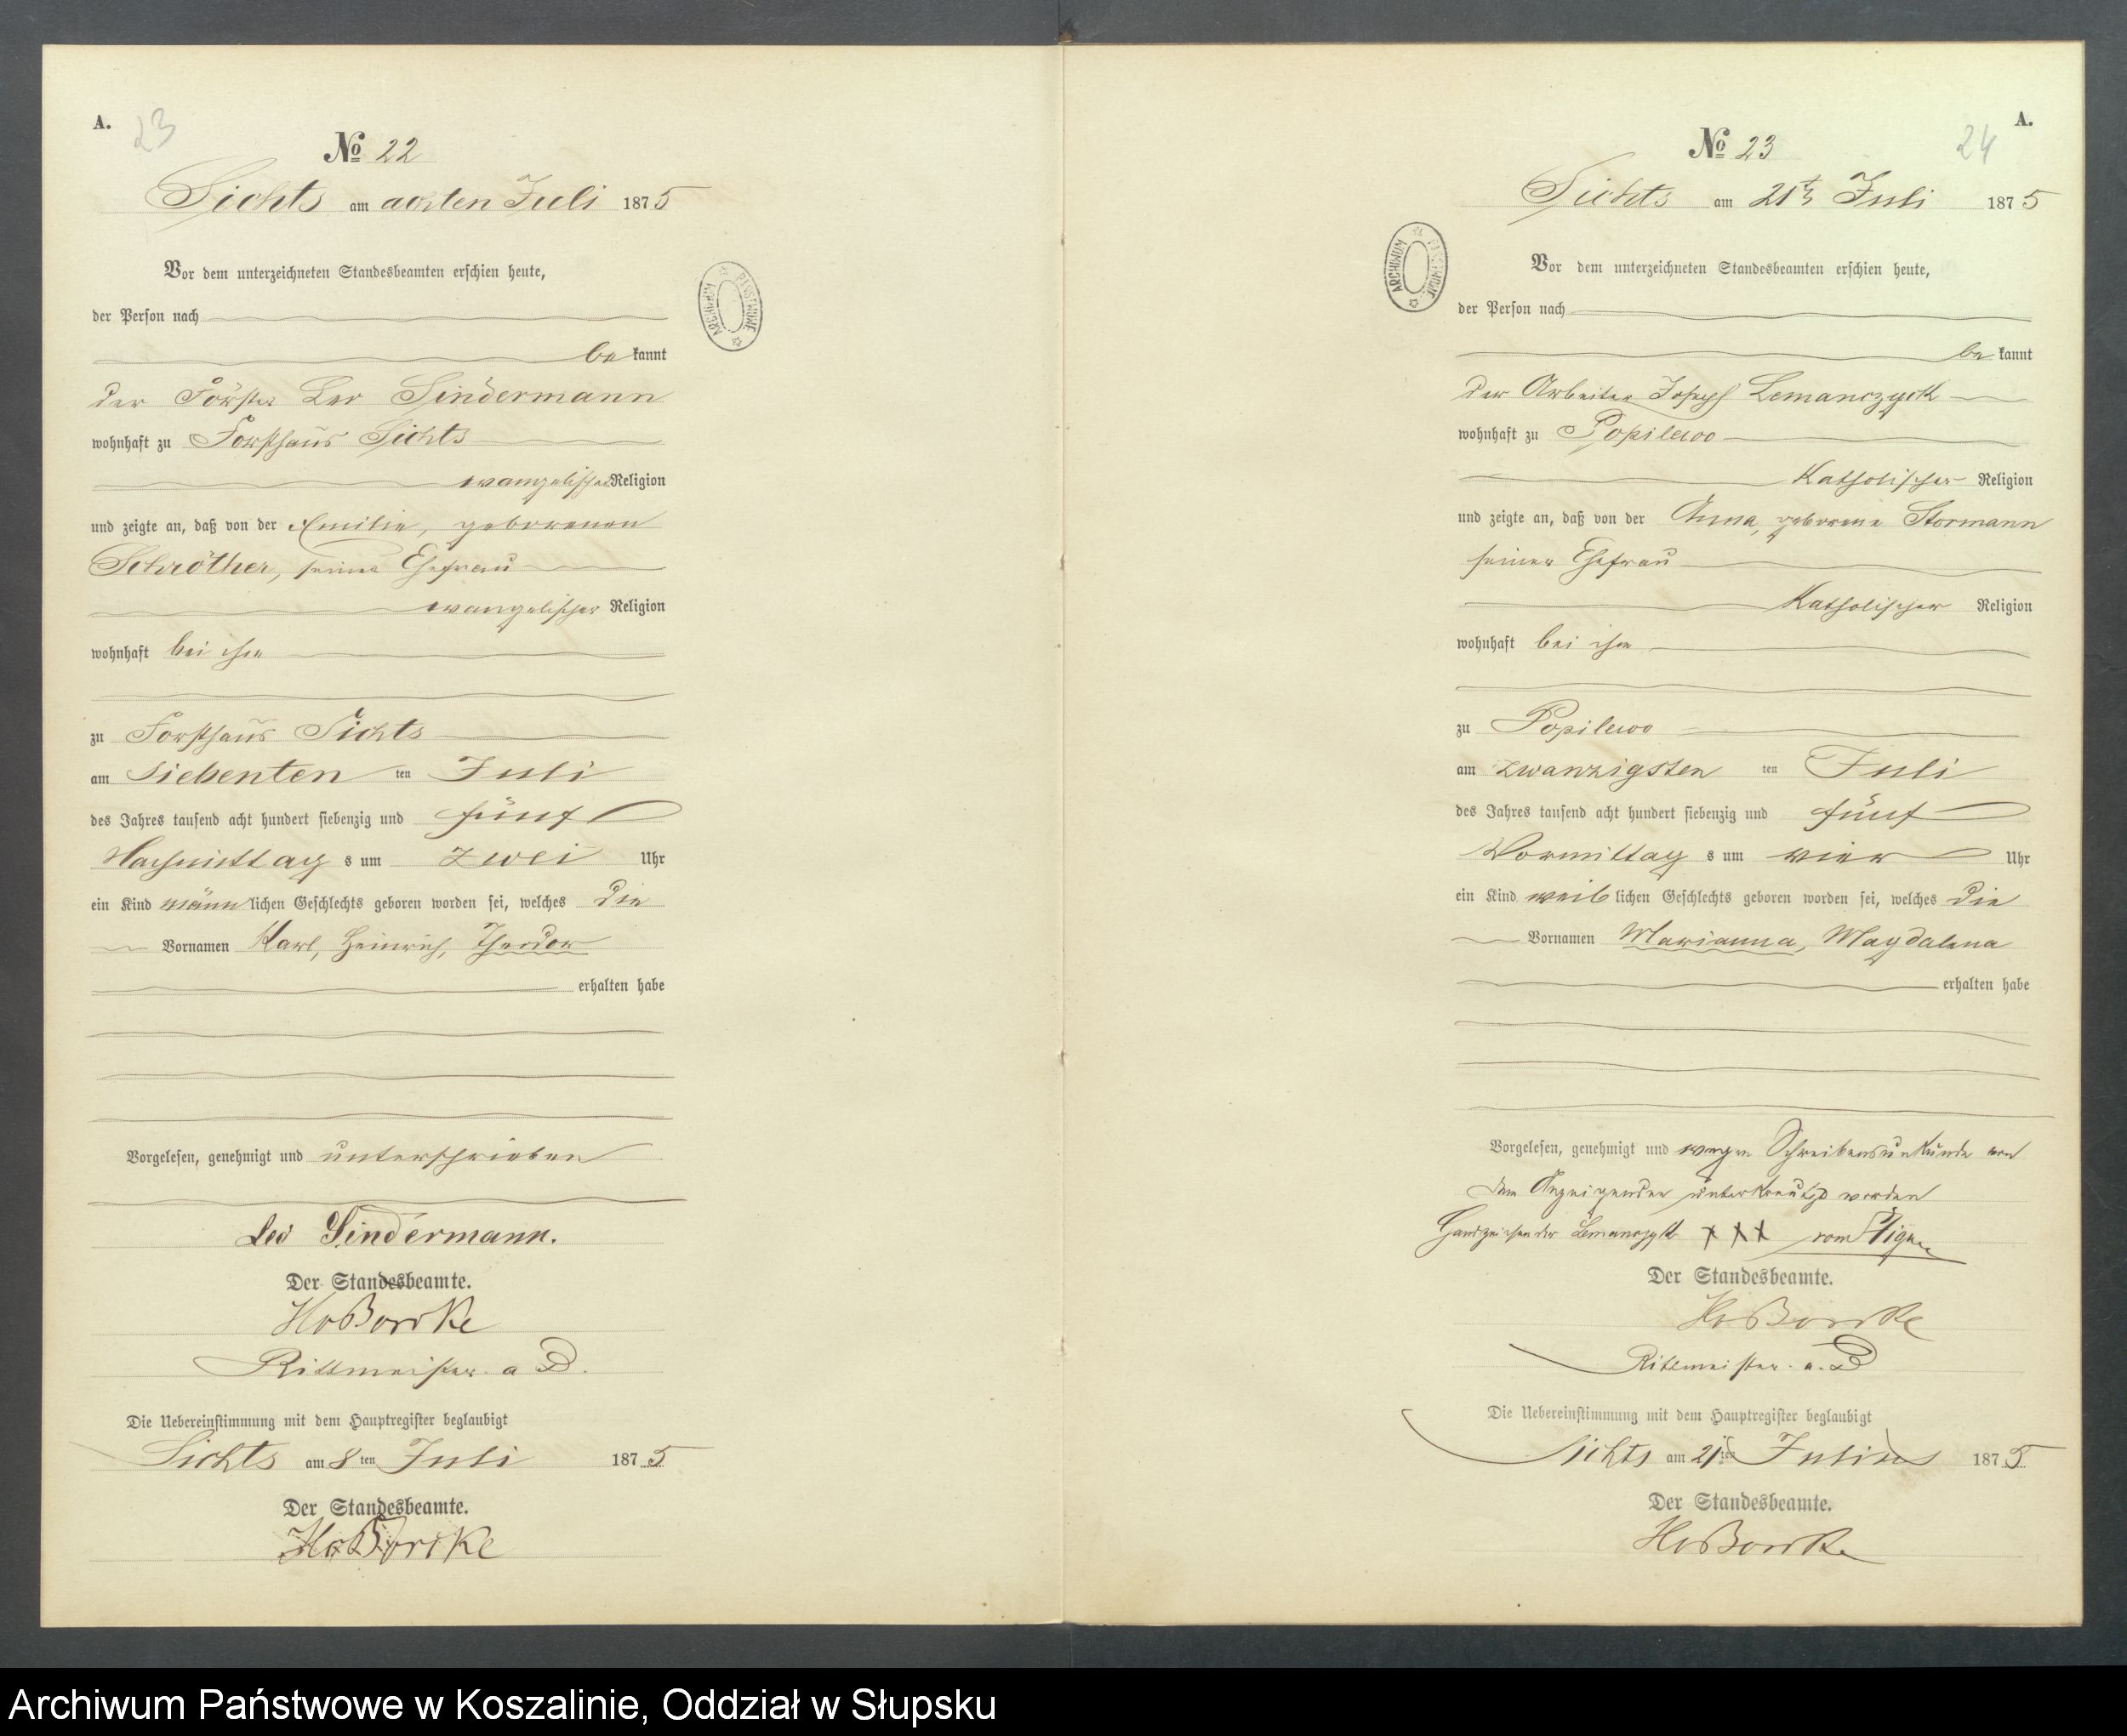 A.
23
No 22
Sichts am achten Juli 1875
ARCHIWUM PAŃSTWOWE
Vor dem unterzeichneten Standesbeamten erschien heute,
der Person nach
be kannt
der Förster Leo Sindermann
wohnhaft zu Forsthaus Sichts
evangelischer Religion
und zeigte an, daß von der Emilie, geborenen
Schröther, seiner Ehefrau
evangelischer Religion
wohnhaft bei ihm
zu Forsthaus Sichts
am Siebenten ten Juli
des Jahres tausend acht hundert siebenzig und fünf
Nachmittag s um zwei Uhr
ein Kind männlichen Geschlechts geboren worden sei, welches die
Vornamen Karl, Heinrich, Theodor
erhalten habe
Vorgelesen, genehmigt und unterschrieben
Leo Sindermann.
Der Standesbeamte.
HvBorcke
Rittmeister a D.
Die Uebereinstimmung mit dem Hauptregister beglaubigt
Sichts am 8 ten Juli 1875
Der Standesbeamte.
HvBorcke
A.
24
No 23
Sichts am 21t Juli 1875
ARCHIWUM PAŃSTWOWE
Vor dem unterzeichneten Standesbeamten erschien heute,
der Person nach
be kannt
der Arbeiter Joseph Lemanczyck
wohnhaft zu Popilewo
Katholischer Religion
und zeigte an, daß von der Anna, geborene Stormann
seiner Ehefrau
Katholischer Religion
wohnhaft bei ihm
zu Popilewo
am zwanzigsten ten Juli
des Jahres tausend acht hundert siebenzig und fünf
Vormittag s um vier Uhr
ein Kind weiblichen Geschlechts geboren worden sei, welches die
Vornamen Marianna, Magdalena
erhalten habe
Vorgelesen, genehmigt und wegen Schreibensunkunde von
dem Anzeigenden unterkreutzt worden
Handzeichen der Lemanczyck +++ vom
Der Standesbeamte.
HvBorcke
Rittmeister a. D
Die Uebereinstimmung mit dem Hauptregister beglaubigt
Sichts am 21 ten Julius 1875
Der Standesbeamte.
HvBorcke
Archiwum Państwowe w Koszalinie, Oddział w Słupsku